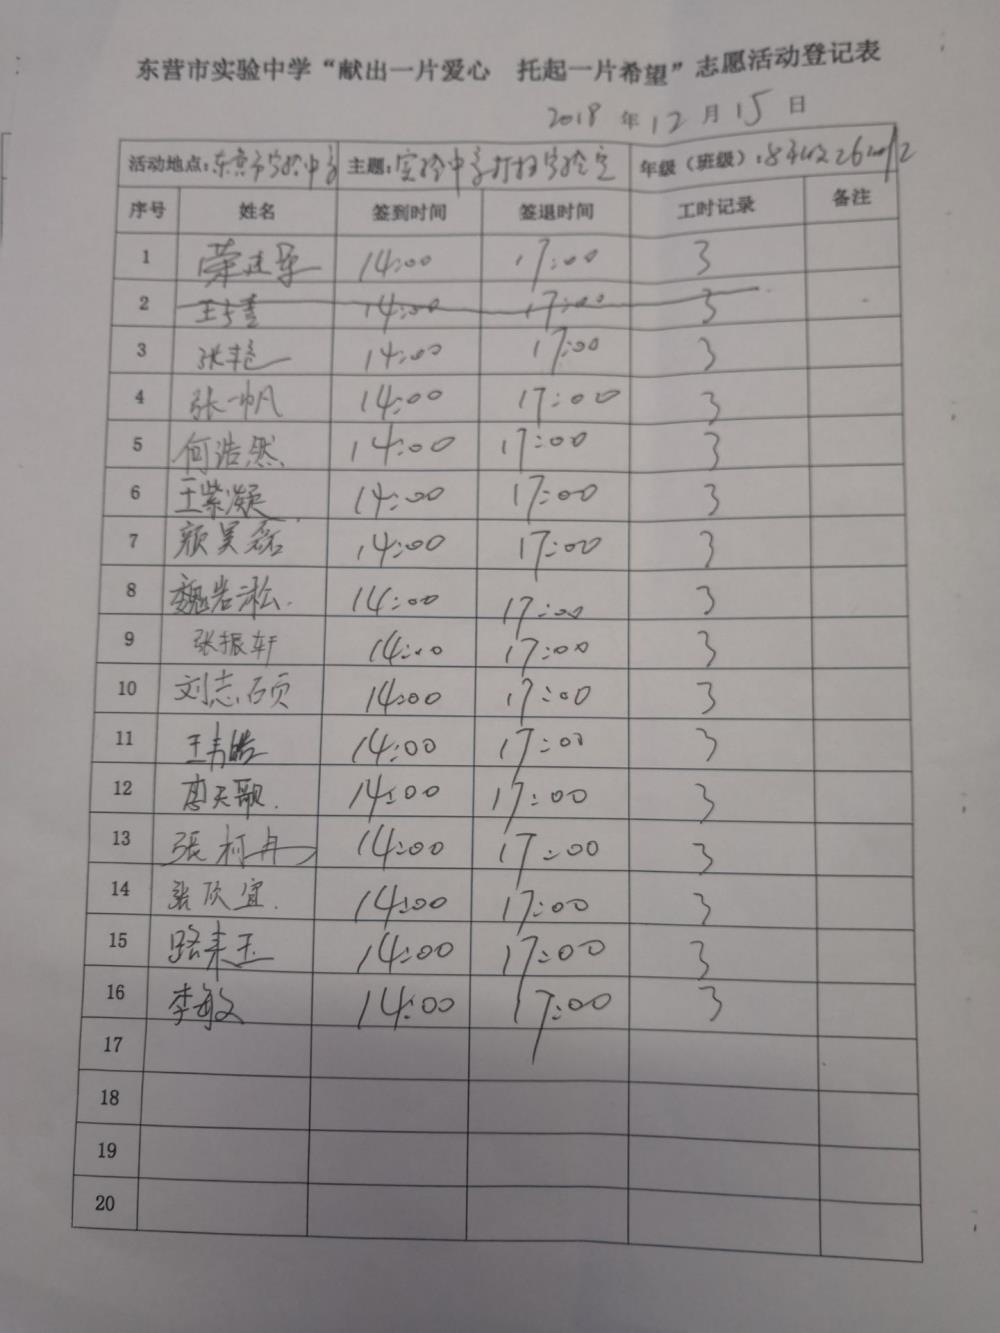 东营市实验中学“献出一片爱心 托起一片希望”志愿活动登记表
2018 年 12 月 15 日
活动地点：东营市实验中学 主题：实验中学打扫实验室 年级（班级）：8年级26
序号 姓名 签到时间 签退时间 工时记录 备注
1 14:00 17:00 3
2 14:00 17:00 3
3 张艳 14:00 17:00 3
4 张一帆 14:00 17:00 3
5 何浩然 14:00 17:00 3
6 王紫凝 14:00 17:00 3
7 颜昊磊 14:00 17:00 3
8 魏岩淞 14:00 17:00 3
9 张振轩 14:00 17:00 3
10 刘志硕 14:00 17:00 3
11 14:00 17:00 3
12 唐天歌 14:00 17:00 3
13 張柯冉 14:00 17:00 3
14 张欣宜 14:00 17:00 3
15 14:00 17:00 3
16 李敏 14:00 17:00 3
17
18
19
20